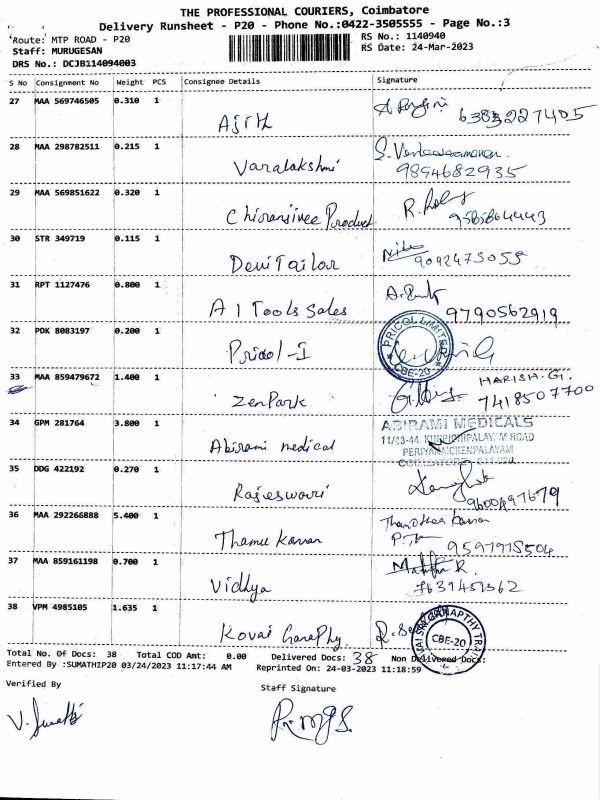 THE PROFESSIONAL COURIERS, Coimbatore
Delivery Runsheet - P20 - Phone No.:0422-3505555 - Page No.:3
Route: MTP ROAD - P20 RS No.: 1140940
Staff: MURUGESAN RS Date: 24-Mar-2023
DRS No.: DCJB114094003
S No Consignment No Weight PCS Consignee Details Signature
27 MAA 569746505 0.310 1 Ajith 6383227405
28 MAA 298782511 0.215 1 Varalakshmi 9894682935
29 MAA 569851622 0.320 1 Chiranjivee Product
30 STR 349719 0.115 1 Devi Tailor 9092475055
31 RPT 1127476 0.800 1 A 1 Tools Sales 9790562919
32 PDK 8083197 0.200 1 Pricol-I PRICOL LIMITED CBE-20
33 MAA 859479672 1.400 1 Zen Park HARISH.G. 7418507700
34 GPM 281764 3.800 1 Abirami medical ABIRAMI MEDICALS
11/43-44, M ROAD
PERIYANAICKENPALAYAM
35 DDG 422192 0.270 1 Rajeswari
36 MAA 292266888 5.400 1 Thamu Kannan
37 MAA 859161198 0.700 1 Vidhya 7639459362
38 VPM 4985105 1.635 1 Kovai CBE-20
Total No. Of Docs: 38 Total COD Amt: 0.00 Delivered Docs: 38 Non Delivered Docs:
Entered By :SUMATHIP20 03/24/2023 11:17:44 AM Reprinted On: 24-03-2023 11:18:59
Verified By Staff Signature